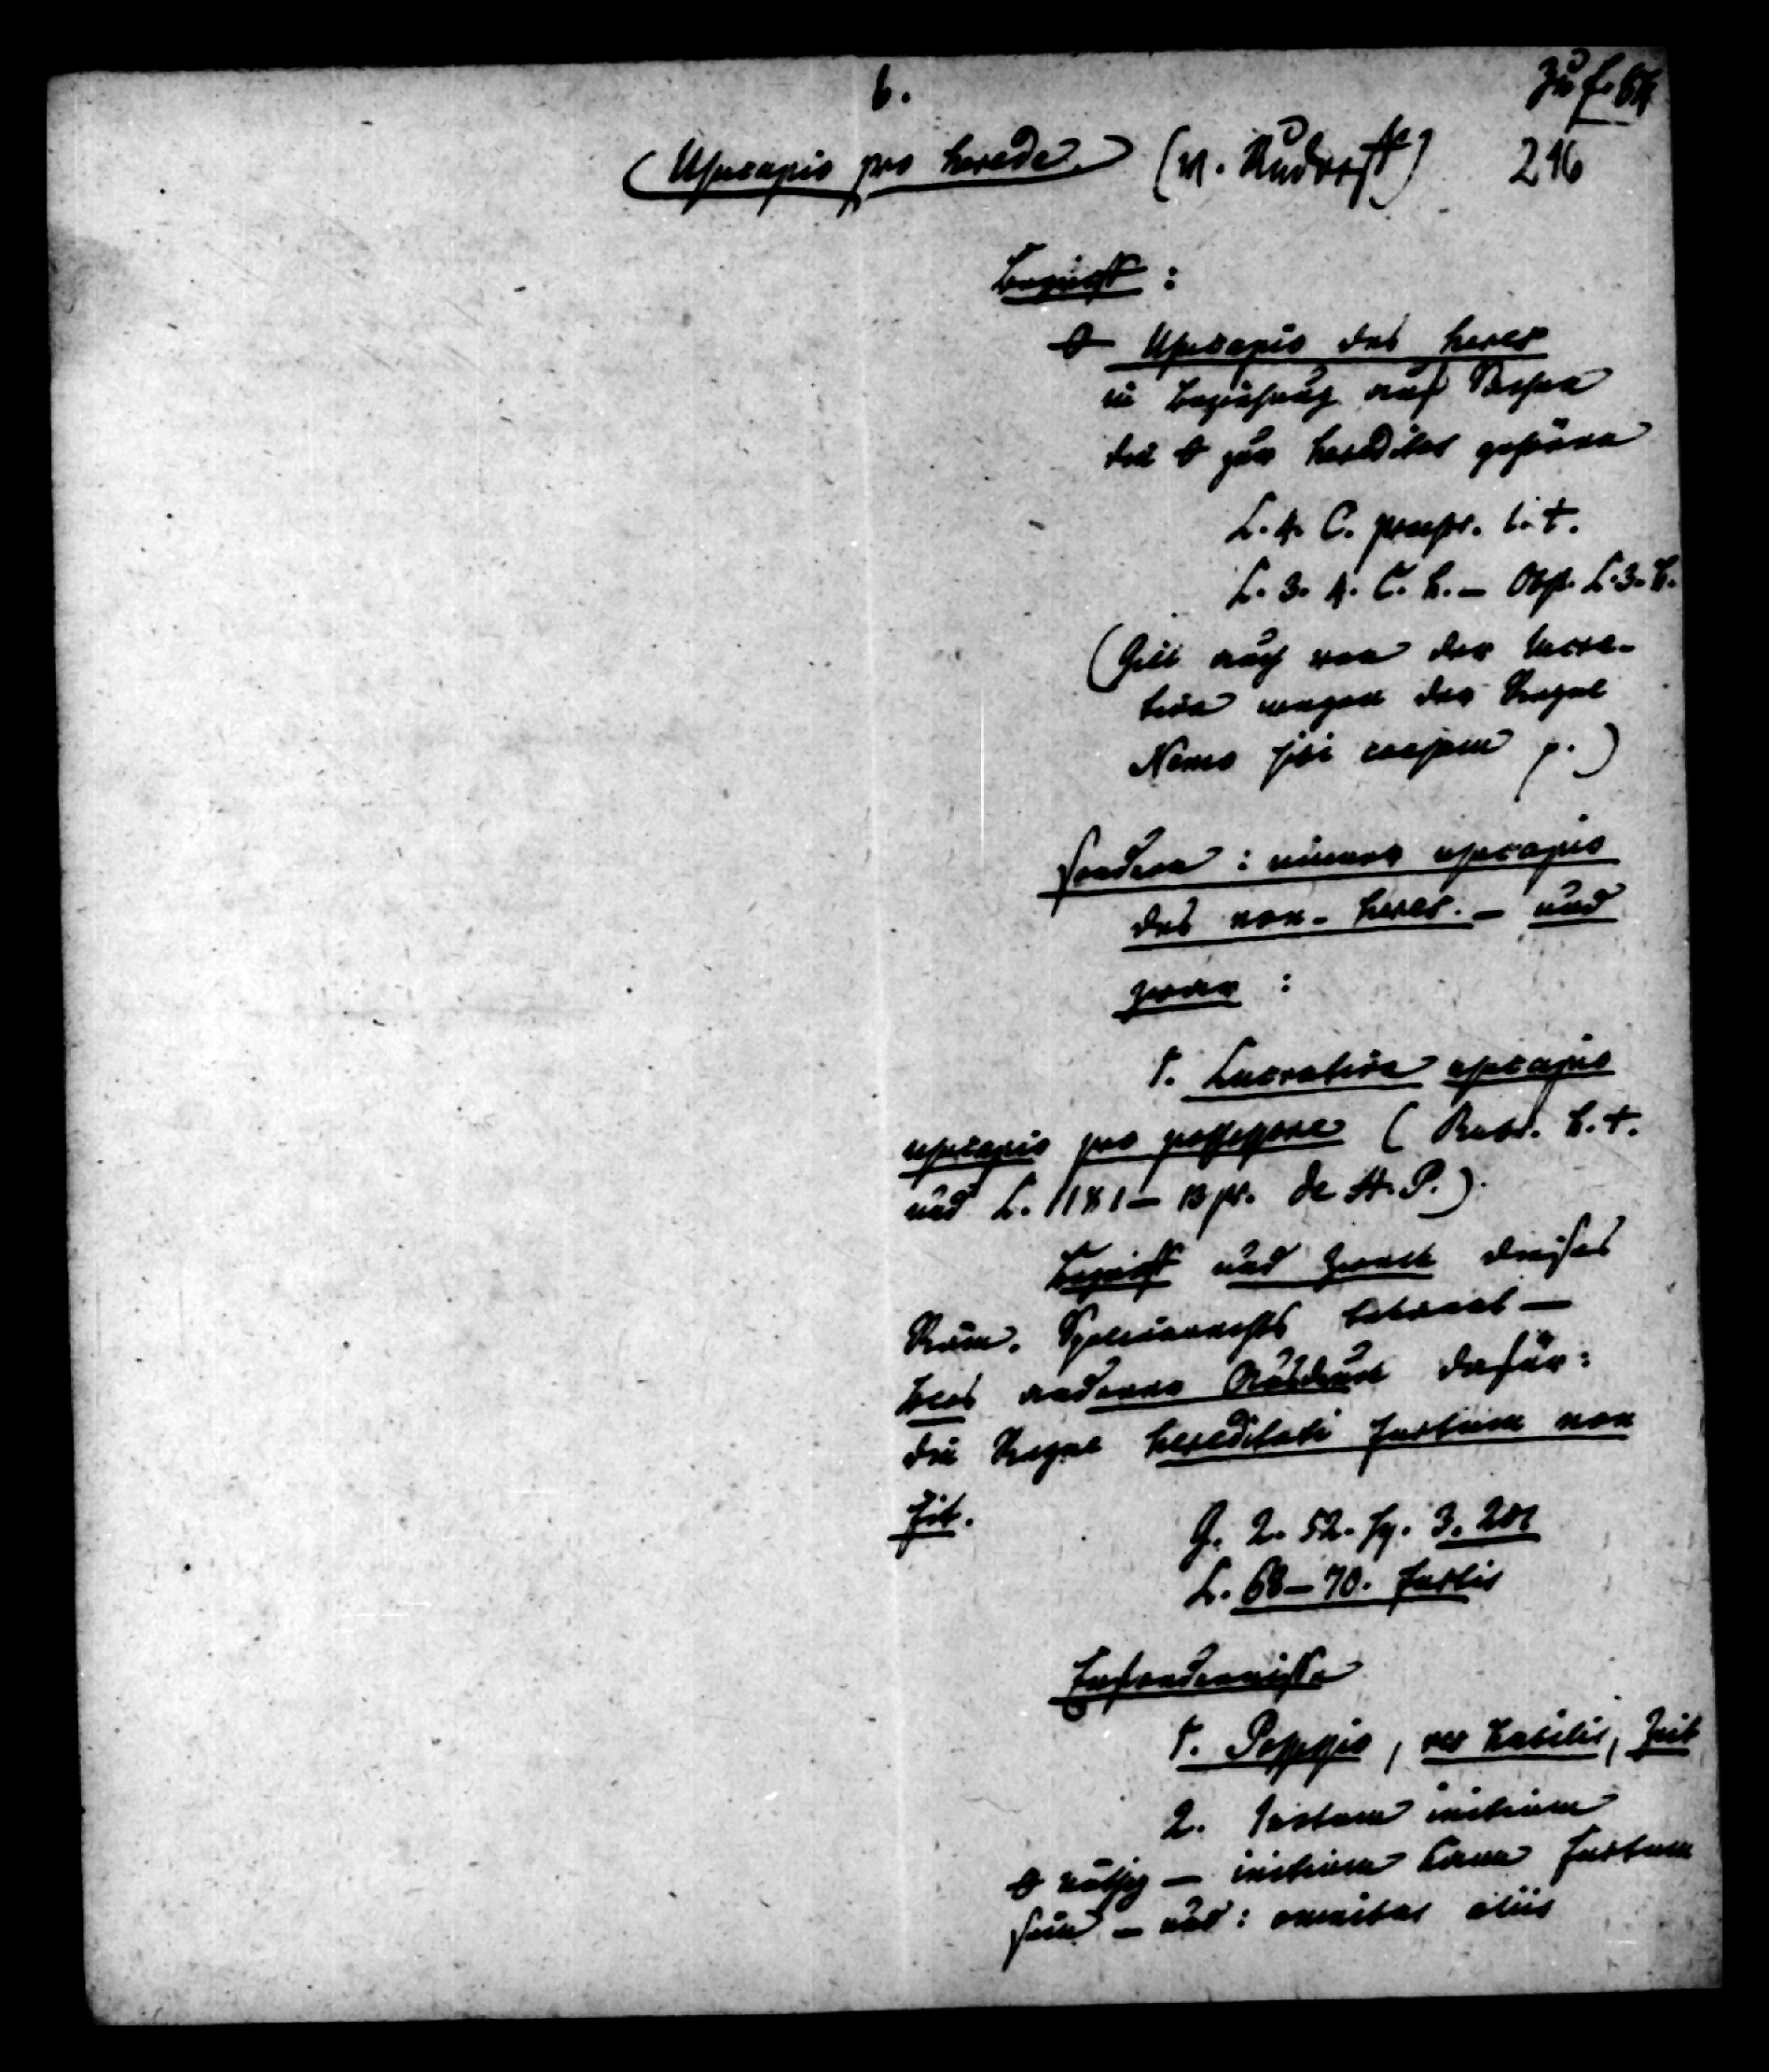 6.
Zu f. 64
(Usucapio pro herede.) (n. Rudorff) 216
Begriff:
Usucapio des heres
in Beziehung auf Sachen
die zur hereditas gehören
L. 4. C. praescr. l. t.
L. 3. 4. C. h. – Obst. L. 3. h.
(Gilt auch von der lucra-
tiva wegen der Regel
Nemo sibi causam p.)
sondern: immer usucapio
des non-heres. – und
zwar:
1. Lucrativa usucapio
usucapio pro possessore (Rubr. h. t.
und L. 11 & 1 – 13 pr. de H. P.).
Begriff und Zweck dieses
Röm. Spolienrechts bekannt –
blos anderer Ausdruck dafür:
die Regel hereditati furtum non
fit.
G. 2. 52. sq. 3. 201
L. 68–70. furtis
Erfordernisse
1. Possessio, res habilis, Zeit
2. Iustum initium
nöthig – initium kann furtum
sein – und: omnibus aliis